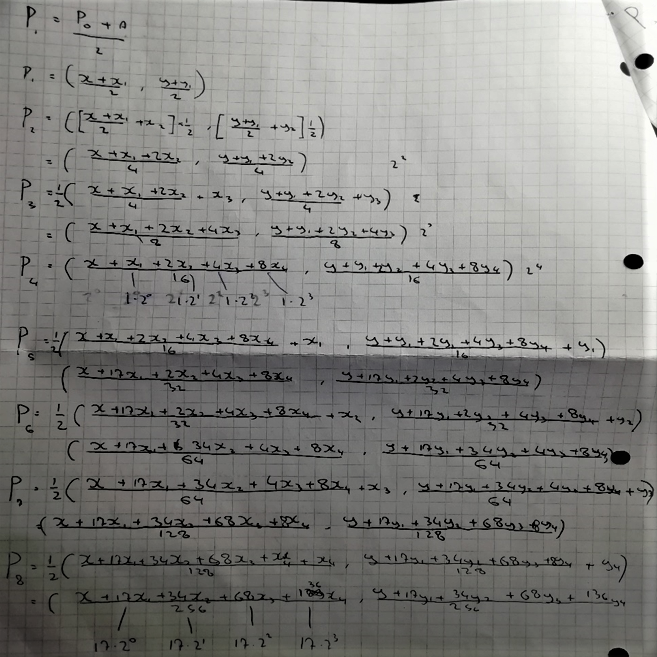 P₁ = (P₀ + A)/2
P₁ = ( (x + x₁)/2 , (y+y₁)/2 )
P₂ = ( [(x + x₁)/2 + x₂]·1/2 , [(y+y₁)/2 + y₂] 1/2 )
= ( (x + x₁ + 2x₂)/4 , (y+y₁ + 2y₂)/4 ) 2²
P₃ = 1/2 ( (x + x₁ + 2x₂)/4 + x₃ , (y+y₁ + 2y₂)/4 + y₃ )
= ( (x + x₁ + 2x₂ + 4x₃)/8 , (y+y₁ + 2y₂ + 4y₃)/8 ) 2³
P₄ = ( (x + x₁ + 2x₂ + 4x₃ + 8x₄)/16 , (y + y₁ + 2y₂ + 4y₃ + 8y₄)/16 ) 2⁴
1·2⁰ 1·2¹ 1·2² 1·2³
P₅ = 1/2 ( (x + x₁ + 2x₂ + 4x₃ + 8x₄)/16 + x₁ , (y + y₁ + 2y₂ + 4y₃ + 8y₄)/16 + y₁ )
( (x + 17x₁ + 2x₂ + 4x₃ + 8x₄)/32 , (y + 17y₁ + 2y₂ + 4y₃ + 8y₄)/32 )
P₆ = 1/2 ( (x + 17x₁ + 2x₂ + 4x₃ + 8x₄)/32 + x₂ , (y + 17y₁ + 2y₂ + 4y₃ + 8y₄)/32 + y₂ )
( (x + 17x₁ + 34x₂ + 4x₃ + 8x₄)/64 , (y + 17y₁ + 34y₂ + 4y₃ + 8y₄)/64 )
P₇ = 1/2 ( (x + 17x₁ + 34x₂ + 4x₃ + 8x₄)/64 + x₃ , (y + 17y₁ + 34y₂ + 4y₃ + 8y₄)/64 + y₃ )
( (x + 17x₁ + 34x₂ + 68x₃ + 8x₄)/128 , (y + 17y₁ + 34y₂ + 68y₃ + 8y₄)/128 )
P₈ = 1/2 ( (x + 17x₁ + 34x₂ + 68x₃ + x₄)/128 + x₄ , (y + 17y₁ + 34y₂ + 68y₃ + 8y₄)/128 + y₄ )
= ( (x + 17x₁ + 34x₂ + 68x₃ + 136x₄)/256 , (y + 17y₁ + 34y₂ + 68y₃ + 136y₄)/256 )
17·2⁰ 17·2¹ 17·2² 17·2³